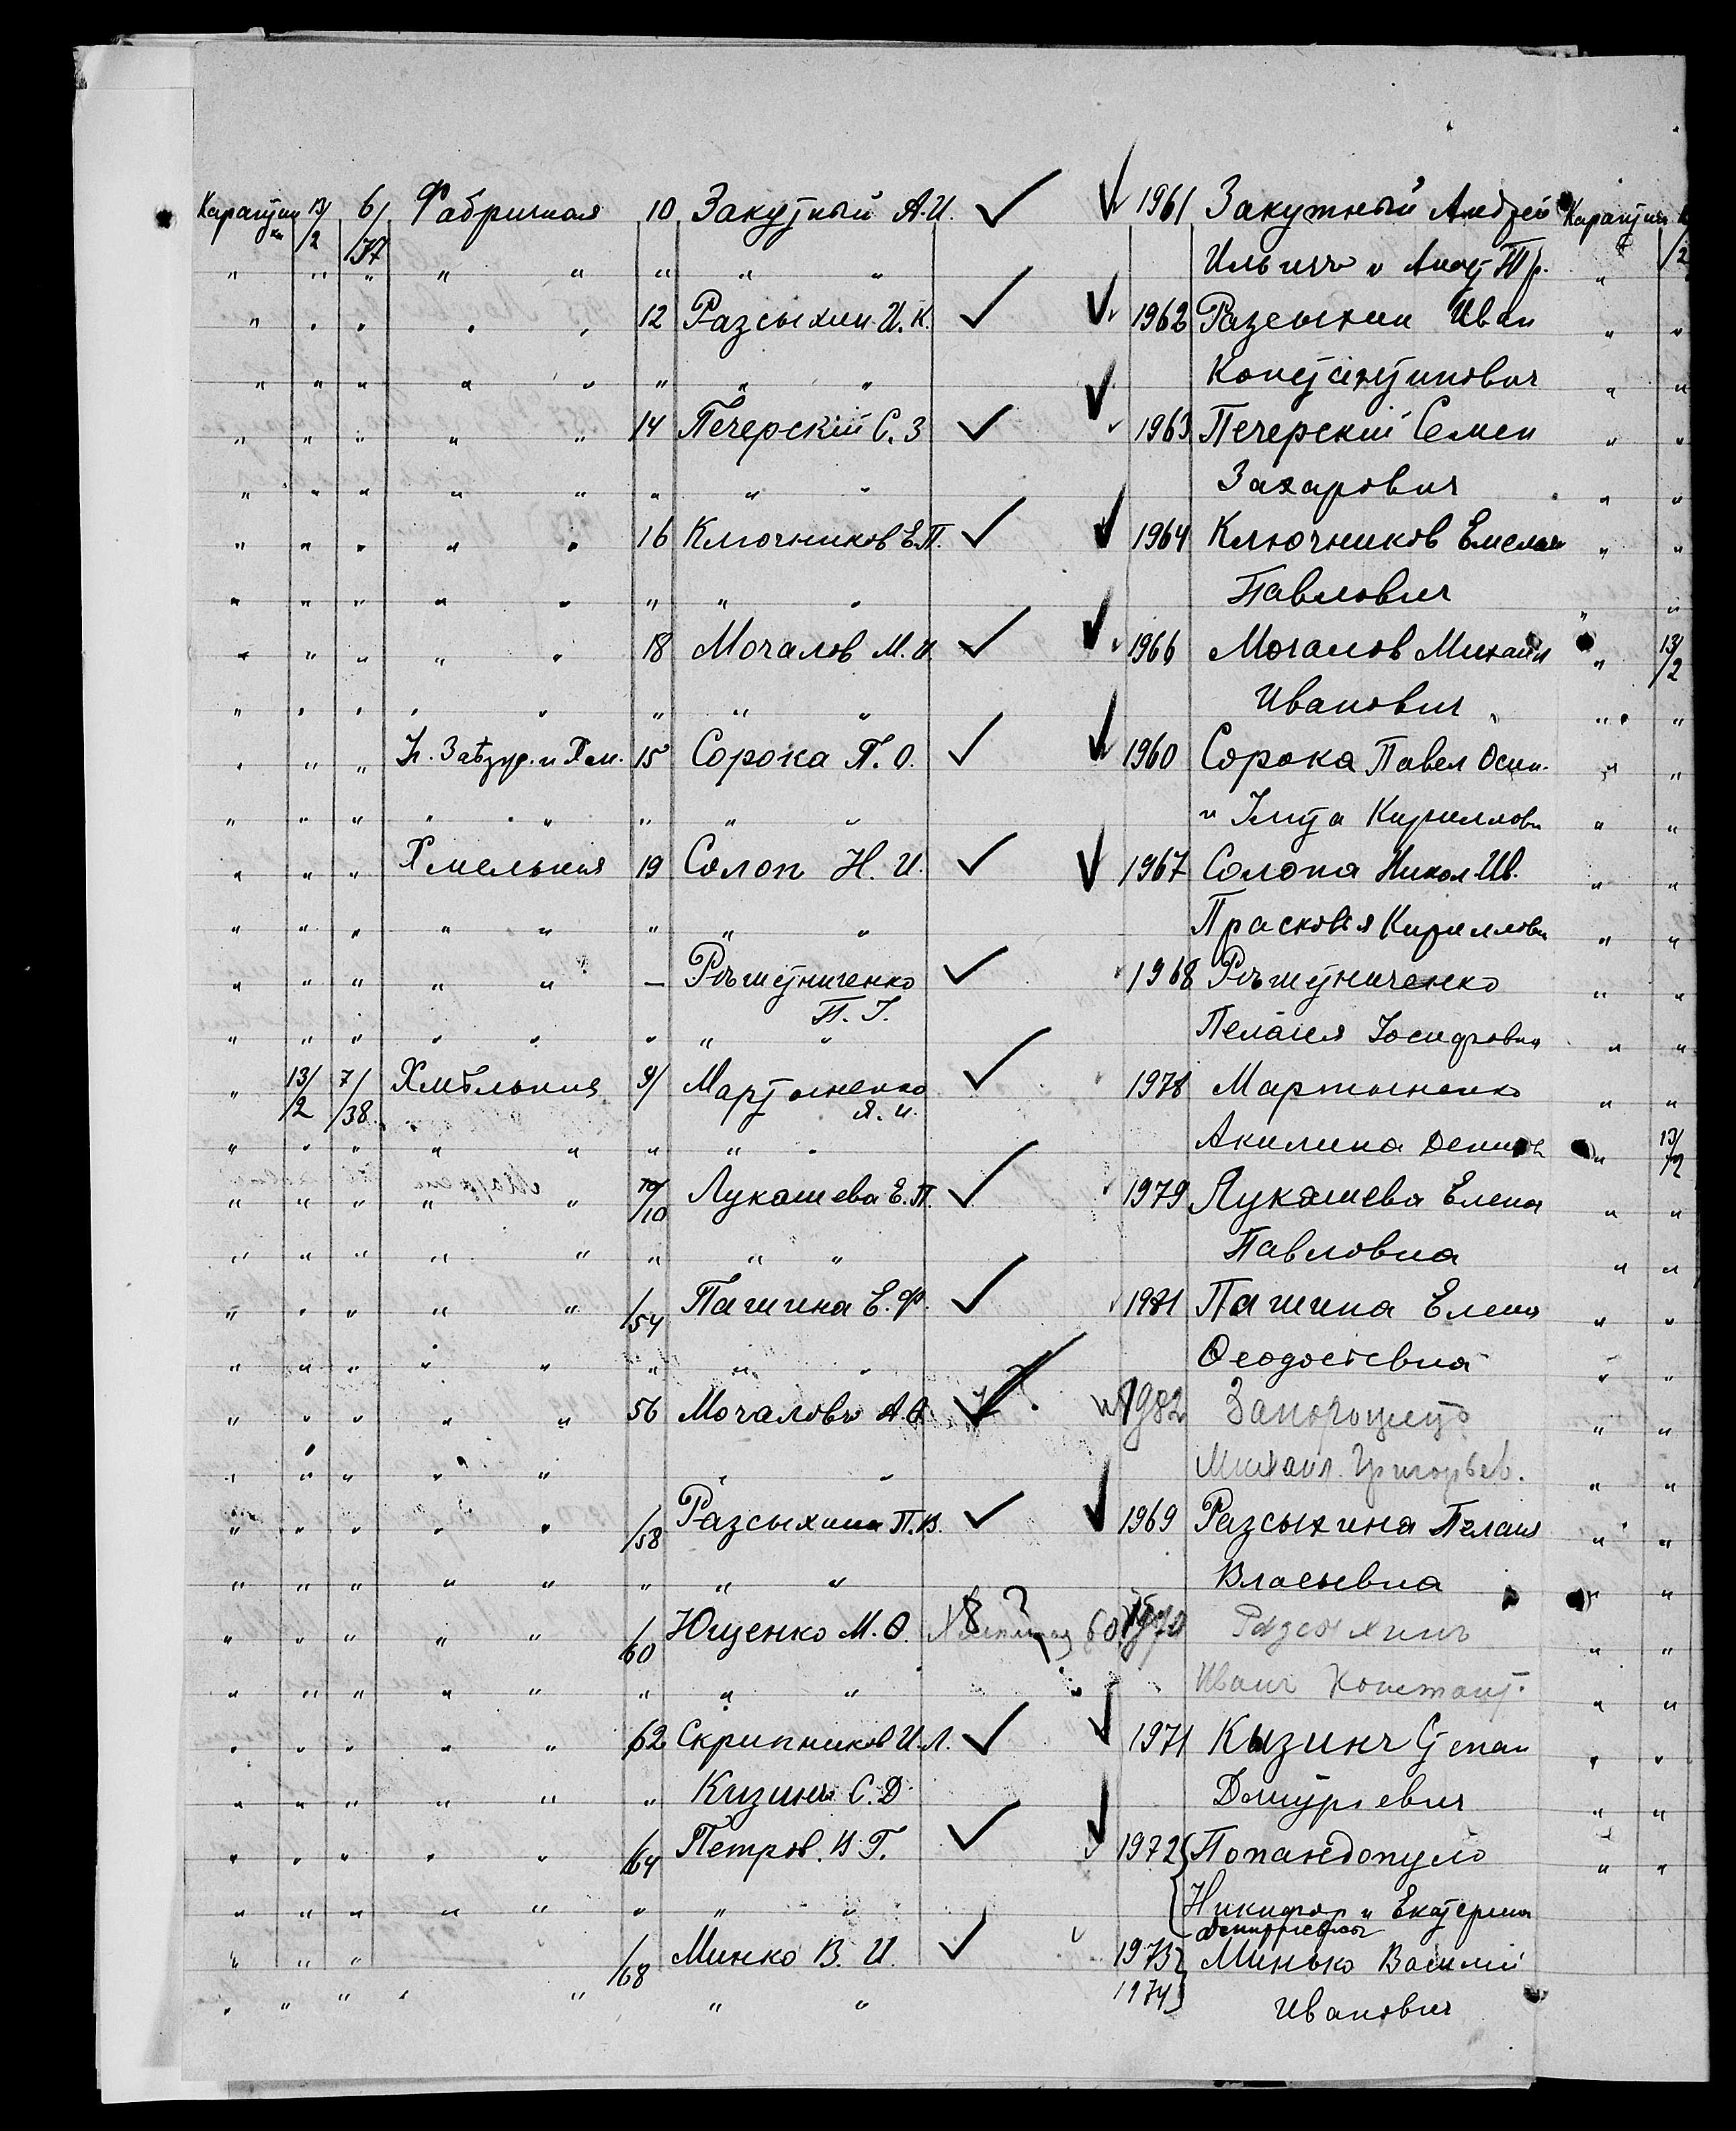 13/2 6/37 Фабричная 10 Закутный А.И. 1961 Закутный Андрей
" " " " " " " " Ильичъ и
" " " " " 12 Разсыхин И.К. 1962 Разсыхин Иван
" " " " " " " " Константинович " "
" " " " " 14 Печерский С.З 1963 Печерский Семен " "
" " " " " " " " Захарович " "
" " " " " 16 Ключников Е.П. 1964 Ключников Емельян " "
" " " " " " " " Павлович " "
" " " " " 18 Мочалов М.И. 1966 Мочалов Михаил " 13/2
" " " " " " " " Иванович " "
" " " 15 Сорока П.О. 1960 Сорока Павел Осип. " "
" " " " " " " " и Кириллов " "
" " " 19 Солоп Н.И. 1967 Солопа Никол. Ив. " "
" " " " " " " " Прасковія Кириллов " "
" " " " " — Рѣшетниченко 1968 Рѣшетниченко " "
П.І.
" " " " " " " " Пелагия Іосифовна " "
" 13/2 7/38 9/ Мартыненко 1978 Мартыненко " "
Я.И.
" " " " " " " " Акилина " 13/2
" " " " " /10 Лукашева Е.П. 1979 Лукашева Елена " "
" " " " " " " " Павловна " "
" " " " " /54 Пашина Е.Ф. 1981 Пашина Елена " "
" " " " " " " " Феодосіевна " "
" " " " " 56 Мочаловъ А.Ф. 1982 Запорожецъ " "
" " " " " " " Михаил Григорьев. " "
" " " " " /58 Разсыхина П.В. 1969 Разсыхина Пелагия " "
" " " " " " " " Власьевна " "
" " " " " /60 Ющенко М.Ф. ? 60 1970 Разсыхинъ " "
" " " " " " " " Иванъ Констант. " "
" " " " " /62 Скрипников И.Л. 1971 Кызинъ Степан " "
" " " " " " Кизинъ С.Д. Дмитріевич " "
" " " " " /64 Петров. В.Г. 1972 Попандопуло " "
" " " " " " " " Никифор и Екатерина
" " " /68 Минко В.И. 1973 Минько Василий
" " " " " " " 1974 Иванович